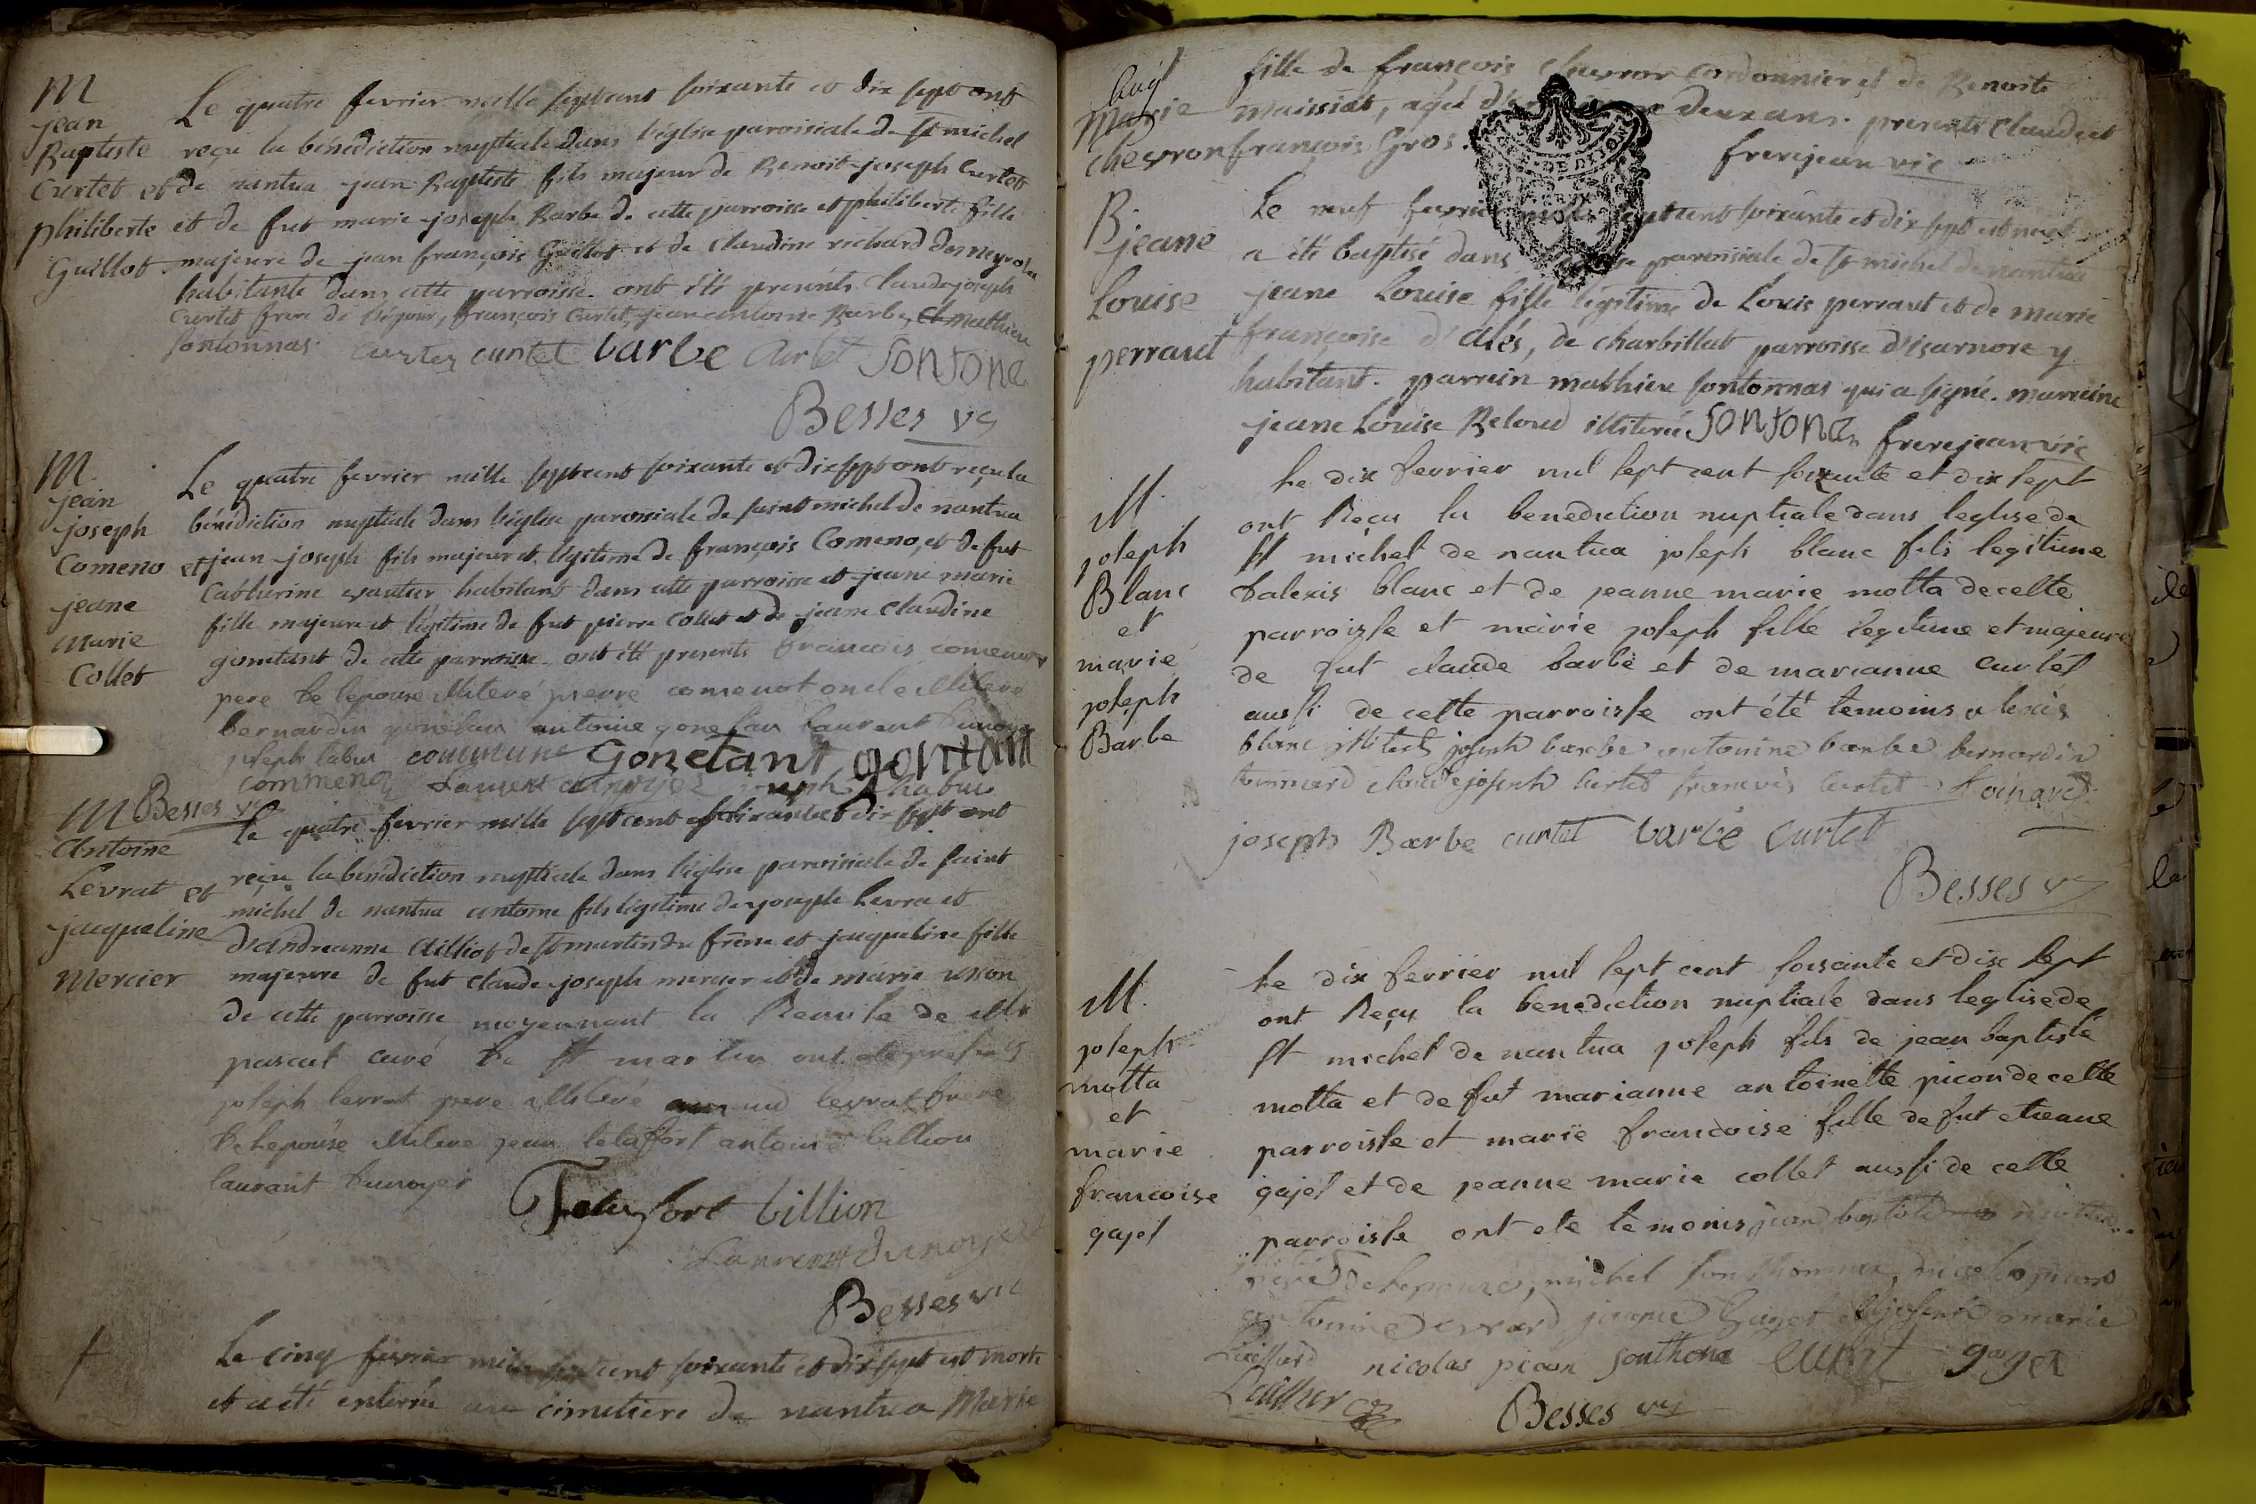 M
jean
Baptiste
Curtet et
philiberte
Guillot
Le quatre fevrier mille septcent soixante et dix sept ont
reçu la bénédiction nuptiale dans l'église paroissiale de st michel
de nantua jean Baptiste fils majeur de Benoit joseph Curtet
et de fut marie joseph Barbe de cette parroisse et philiberte fille
majeure de jean françois Guillot et de claudine richard des neyrolles
habitante dans cette parroisse. ont été presents claude joseph
Curtet frere de l'époux, françois Curtet, jean antoine Barbe, et mathieu
sontonnas. curtet curtet barbe Curtet SONTONA
Besses vic
M.
jean
joseph
Comeno et
jeane
marie
Collet
Le quatre fevrier mille septcent soixante et dix sept ont reçu la
bénédiction nuptiale dans l'église paroissiale de saint michel de nantua
jean joseph fils majeur et légitime de françois Comeno, et de fut
Catherine vautier habitant dans cette parroisse et jeane marie
fille majeure et légitime de fut pierre Collet et de jeane claudine
gonetant de cette parroisse. ont été presents francois comenot
pere de lepouse illiteré pierre comenot oncle illiteré
bernardin gonetan antoine gonetan laurent dunoyer
joseph labus commune Gonetant gontan
commeno Laurent dunoyer joseph chabus
Besses vic
M
Antoine
Levrat et
jacqueline
Mercier
Le quatre fevrier mille septcent soixante et dix sept ont
reçu la bénédiction nuptiale dans l'église paroissiale de saint
michel de nantua antoine fils légitime de joseph levra et
d'andreanne Cilliot de st martin du frêne et jacqueline fille
majeure de fut claude joseph mercier et de marie
de cette parroisse moyennant la Remise de Mr
pascal curé de st martin ont été presents
joseph levrat pere illiteré levrat frere
de lepouse illiteré jean letafort antoine billion
laurant dunoyer
billion
Laurent dunoyer
Besses vic
Le cinq fevrier mille septcent soixante et dix sept est morte
et a été enterrée au cimetiere de nantua Marie
Marie
chevron
fille de françois chevron cordonnier et de Benoite
maissiat, agée deux ans. presents Claude et
françois Gros.
frerejean vic
B jeane
Louise
perraut
Le neuf fevrier mille septcent soixante et dix sept est née et
a été baptisé dans paroissiale de st michel de nantua
jeane Louise fille légitime de Louis perraut et de marie
françoise d'alés, de charbillat parroisse d'isarnore y
habitant. parrein mathieu sontonnas qui a signé. marreine
jeane Louise Reloud illiteré SONTONAS frerejean vic
M.
joseph
Blanc
et
marie
joseph
Barbe
le dix fevrier mil sept cent soixante et dix sept
ont Reçu la benediction nuptiale dans leglise de
st michel de nantua joseph blanc fils legitime
d'alexis blanc et de jeanne marie motta de cette
parroisse et marie joseph fille legitime et majeure
de fut claude barbe et de marianne curtet
aussi de cette parroisse ont été temoins alexis
blanc illiteré joseph barbe antonine barbe bernardin
claude joseph curtet francois curtet
joseph Barbe curtet barbe curtet
Besses vic
M.
joseph
motta
et
marie
francoise
gajet
le dix fevrier mil sept cent soisante et dix sept
ont Reçu la benediction nuptiale dans leglise de
st michel de nantua joseph fils de jean baptiste
motta et de fut marianne antoinette picon de cette
parroisse et marie francoise fille de fut etieane
gajet et de jeanne marie collet aussi de cette
parroisse ont ete temoins jean baptiste motta
pere de lepouse, michel nicolas picon
antonine evrard gajet et joseph marie
nicolas picon Sonthona evrat gaget
Besses vic